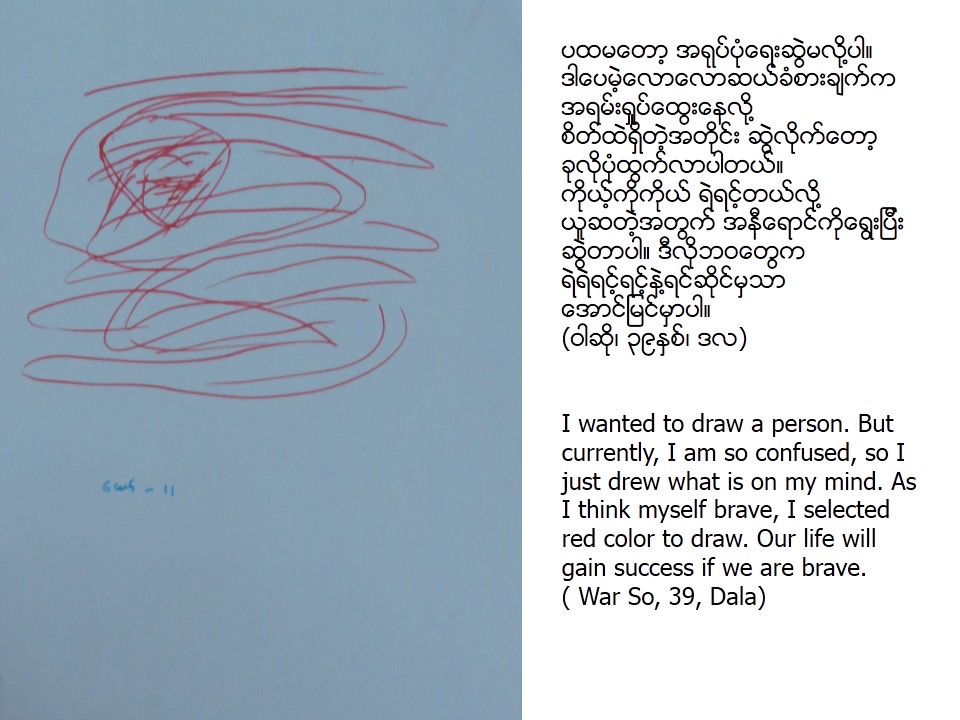 ပထမတော့ အရုပ်ပုံရေးဆွဲမလို့ပါ။
ဒါပေမဲ့လောလောဆယ်ခံစားချက်က
အရမ်းရှုပ်ထွေးနေလို့
စိတ်ထဲရှိတဲ့အတိုင်း ဆွဲလိုက်တော့
ခုလိုပုံထွက်လာပါတယ်။
ကိုယ့်ကိုကိုယ် ရဲရင့်တယ်လို့
ယူဆတဲ့အတွက် အနီရောင်ကိုရွေးပြီး
ဆွဲတာပါ။ ဒီလိုဘဝတွေက
ရဲရဲရင့်ရင့်နဲ့ရင်ဆိုင်မှသာ
အောင်မြင်မှာပါ။
(ဝါဆို၊ ၃၉နှစ်၊ ဒလ)
I wanted to draw a person. But
currently, I am so confused, so I
just drew what is on my mind. As
I think myself brave, I selected
red color to draw. Our life will
gain success if we are brave.
( War So, 39, Dala)